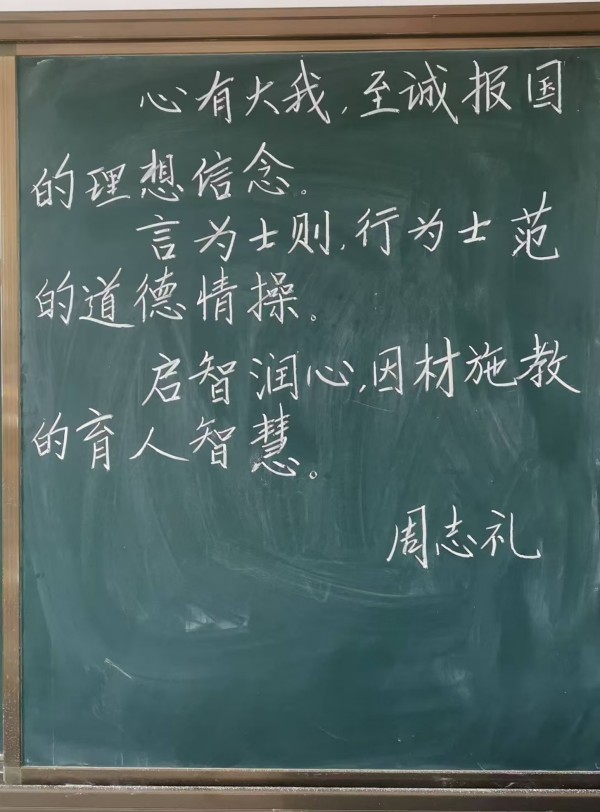 心有大我，至诚报国
的理想信念。
言为士则，行为士范
的道德情操。
启智润心，因材施教
的育人智慧。
周志礼